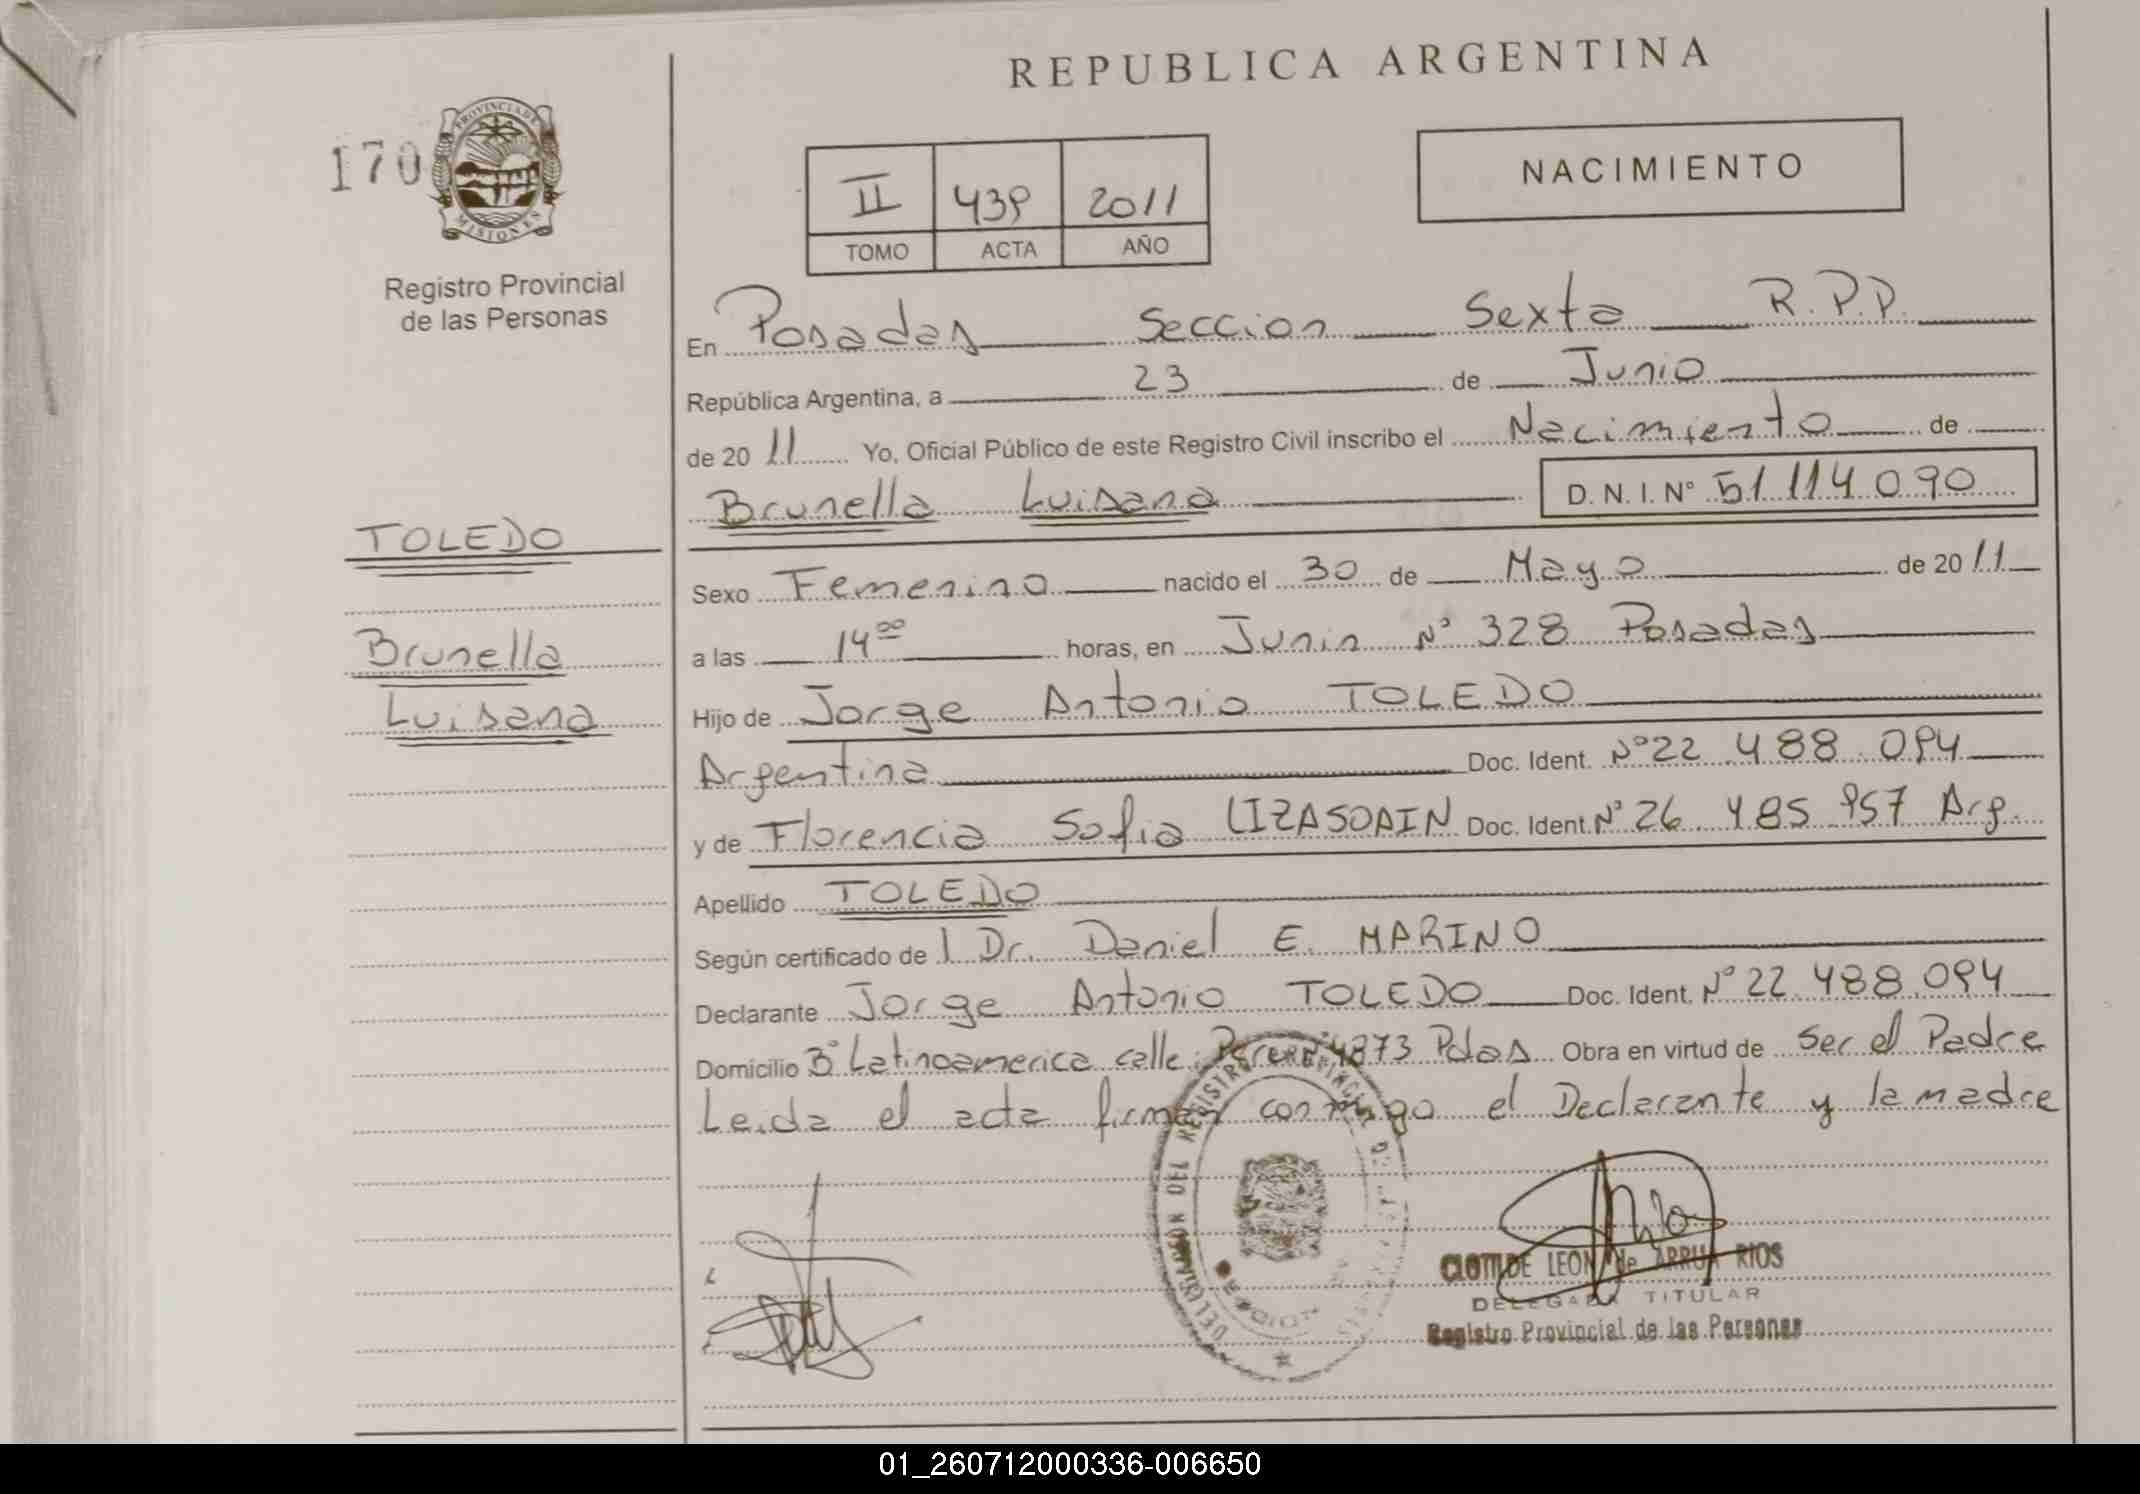 REPUBLICA ARGENTINA
170
PROVINCIA DE
MISIONES
Registro Provincial
de las Personas
II 439 2011
TOMO ACTA AÑO
NACIMIENTO
En Posadas Seccion Sexta R.P.P.
República Argentina, a 23 de Junio
de 20 11 Yo, Oficial Público de este Registro Civil inscribo el Nacimiento de
Brunella Luisana D. N. I. Nº 51 114 090
TOLEDO
Brunella
Luisana
Sexo Femenino nacido el 30 de Mayo de 20 11
a las 14ºº horas, en Junin Nº 328 Posadas
Hijo de Jorge Antonio TOLEDO
Argentina Doc. Ident. Nº 22 488 094
y de Florencia Sofia LIZASOAIN Doc. Ident. Nº 26 485 957 Arg.
Apellido TOLEDO
Según certificado de l Dr. Daniel E. MARINO
Declarante Jorge Antonio TOLEDO Doc. Ident. Nº 22 488 094
Domicilio Bº Latinoamerica calle 4873 Pdas Obra en virtud de Ser el Padre
Leida el acta firman conmigo el Declarante y la madre
CLOTILDE LEON de ARRUA RIOS
DELEGADA TITULAR
Registro Provincial de las Personas
01_260712000336-006650